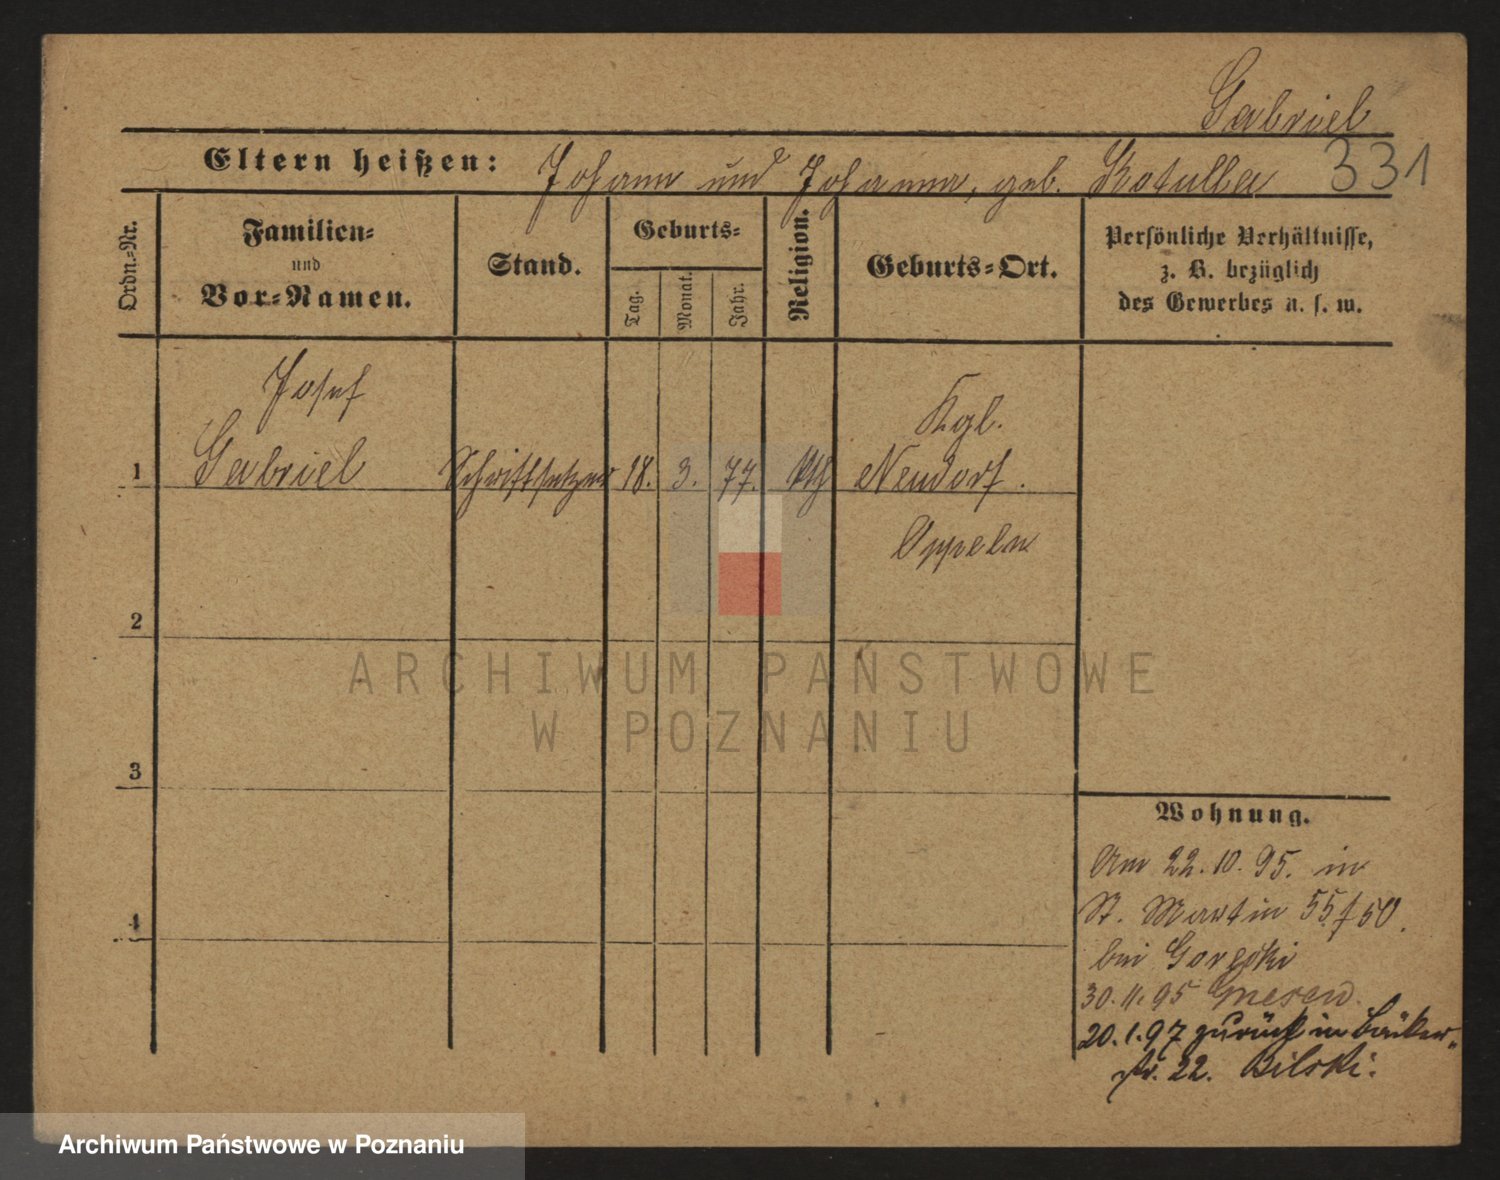 Gabriel
Eltern heißen: Johann und Johanna, geb. Kotulla 331
Ordn.-Nr.
Familien-
und
Vor-Namen.
Stand.
Geburts-
Tag.
Monat.
Jahr.
Religion.
Geburts-Ort.
Persönliche Verhältnisse,
z. B. bezüglich
des Gewerbes u. s. w.
Josef
Kgl.
1 Gabriel Schriftsetzer 18. 3. 77. kth Neudorf.
Oppeln
2
3
4
Wohnung.
Am 22.10.95. in
St. Martin 55/50.
bei Gorecki
30.11.95 Gnesen.
20.1.97 zurück in Bäcker-
str. 22. Bilski.
ARCHIWUM PAŃSTWOWE
W POZNANIU
Archiwum Państwowe w Poznaniu